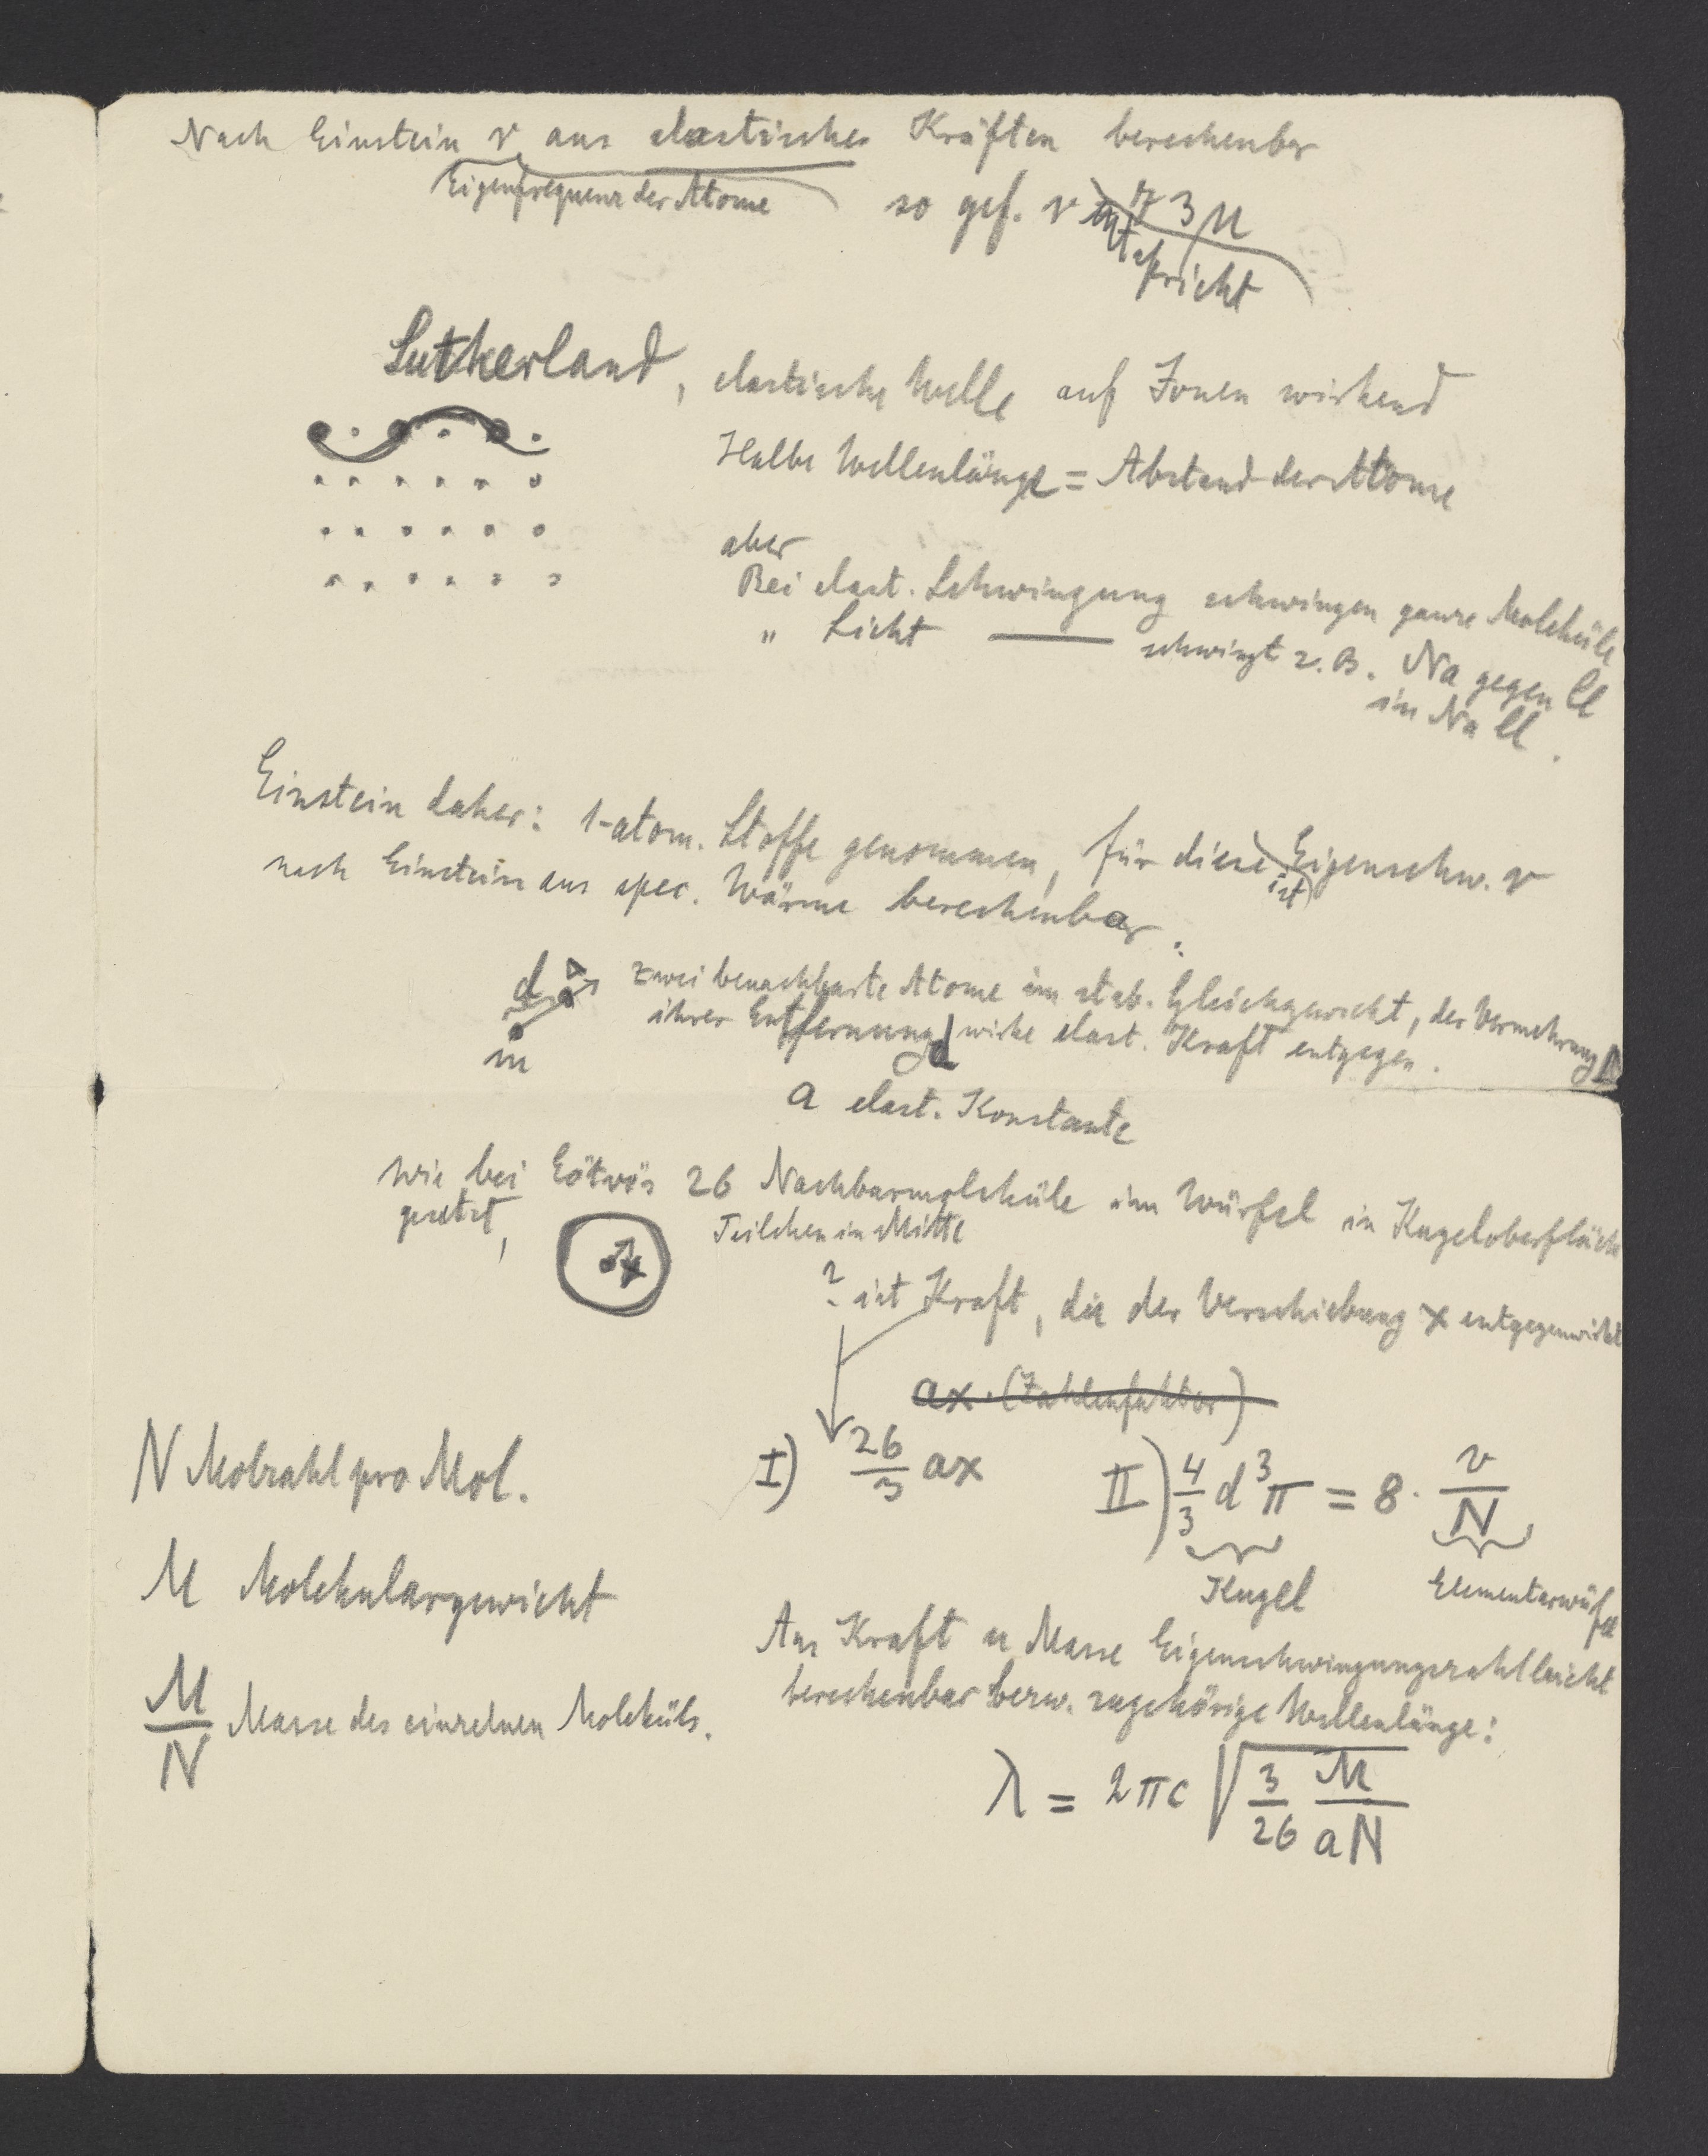 Nach Einstein ν aus elastischen Kräften berechenbar
Eigenfrequenz der Atome
so gef. ν entspricht 73 μ
Sutherland, elastische Welle auf Ionen wirkend
Halbe Wellenlänge = Abstand der Atome
aber
Bei elast. Schwingung schwingen ganze Moleküle
" Licht —— schwingt z. B. Na gegen Cl
in Na Cl.
Einstein daher: 1-atom. Stoffe genommen, für diese ist Eigenschw. ν
nach Einstein aus spec. Wärme berechenbar.
d Δ zwei benachbarte Atome im stab. Gleichgewicht, der Vermehrung Δ
ihrer Entfernung d wirke elast. Kraft entgegen.
m
a elast. Konstante
wie bei Eötvös 26 Nachbarmoleküle im Würfel in Kugeloberfläche
gesetzt, Teilchen in Mitte
x
? ist Kraft, die der Verschiebung x entgegenwirkt
ax · (Zahlenfaktor)
N Molzahl pro Mol.
I) 26/3 ax II) 4/3 d³π = 8 · v/N
Kugel Elementarwürfel
M Molekulargewicht
Aus Kraft u Masse Eigenschwingungszahl leicht
berechenbar bezw. zugehörige Wellenlänge:
M/N Masse des einzelnen Moleküls.
λ = 2πc √(3/26 M/aN)